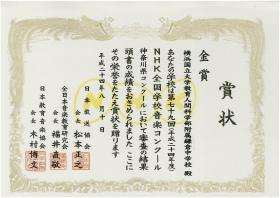 賞状
金賞
横浜国立大学教育人間科学部附属鎌倉中学校 殿
あなたの学校は第七十九回(平成二十四年度)
NHK全国学校音楽コンクール
神奈川県コンクールにおいて審査の結果
頭書の成績をおさめられました ここに
その栄誉をたたえ賞状を贈ります
平成二十四年八月十日
日本放送協会
会長 松本正之
全日本音楽教育研究会
会長 福井直敬
日本教育音楽協会
会長 木村博文